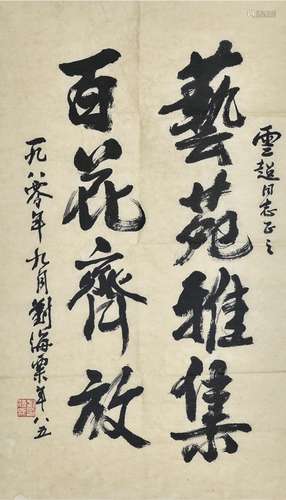 雲超同志正之
藝苑雅集
百花齊放
一九八零年九月劉海粟年八五